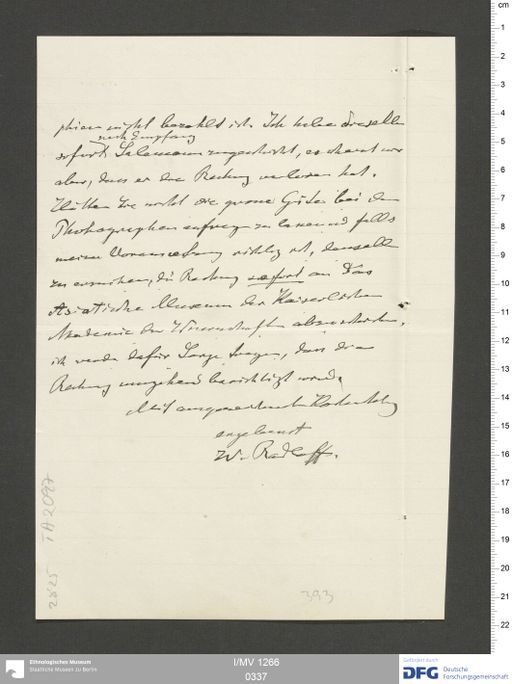 phien nicht bezahlt ist. Ich habe dieselbe
nach Empfang
sofort Salemann zugeschickt, es scheint mir
aber, dass er die Rechnung verloren hat.
Hätten Sie nicht die grosse Güte bei dem
Photographen anfragen zu lassen und falls
meine Voraussetzung richtig ist, denselben
zu ersuchen, die Rechnung sofort an das
Asiatische Museum der Kaiserlichen
Akademie der Wissenschaften abzusenden,
ich werde dafür Sorge tragen, dass die
Rechnung umgehend berichtigt werde
Mit ausgezeichneter Hochachtung
ergebenst
W. Radloff.
TA 2097
393
Ethnologisches Museum
Staatliche Museen zu Berlin
I/MV 1266
0337
Gefördert durch
DFG
Deutsche
Forschungsgemeinschaft
cm
1
2
3
4
5
6
7
8
9
10
11
12
13
14
15
16
17
18
19
20
21
22